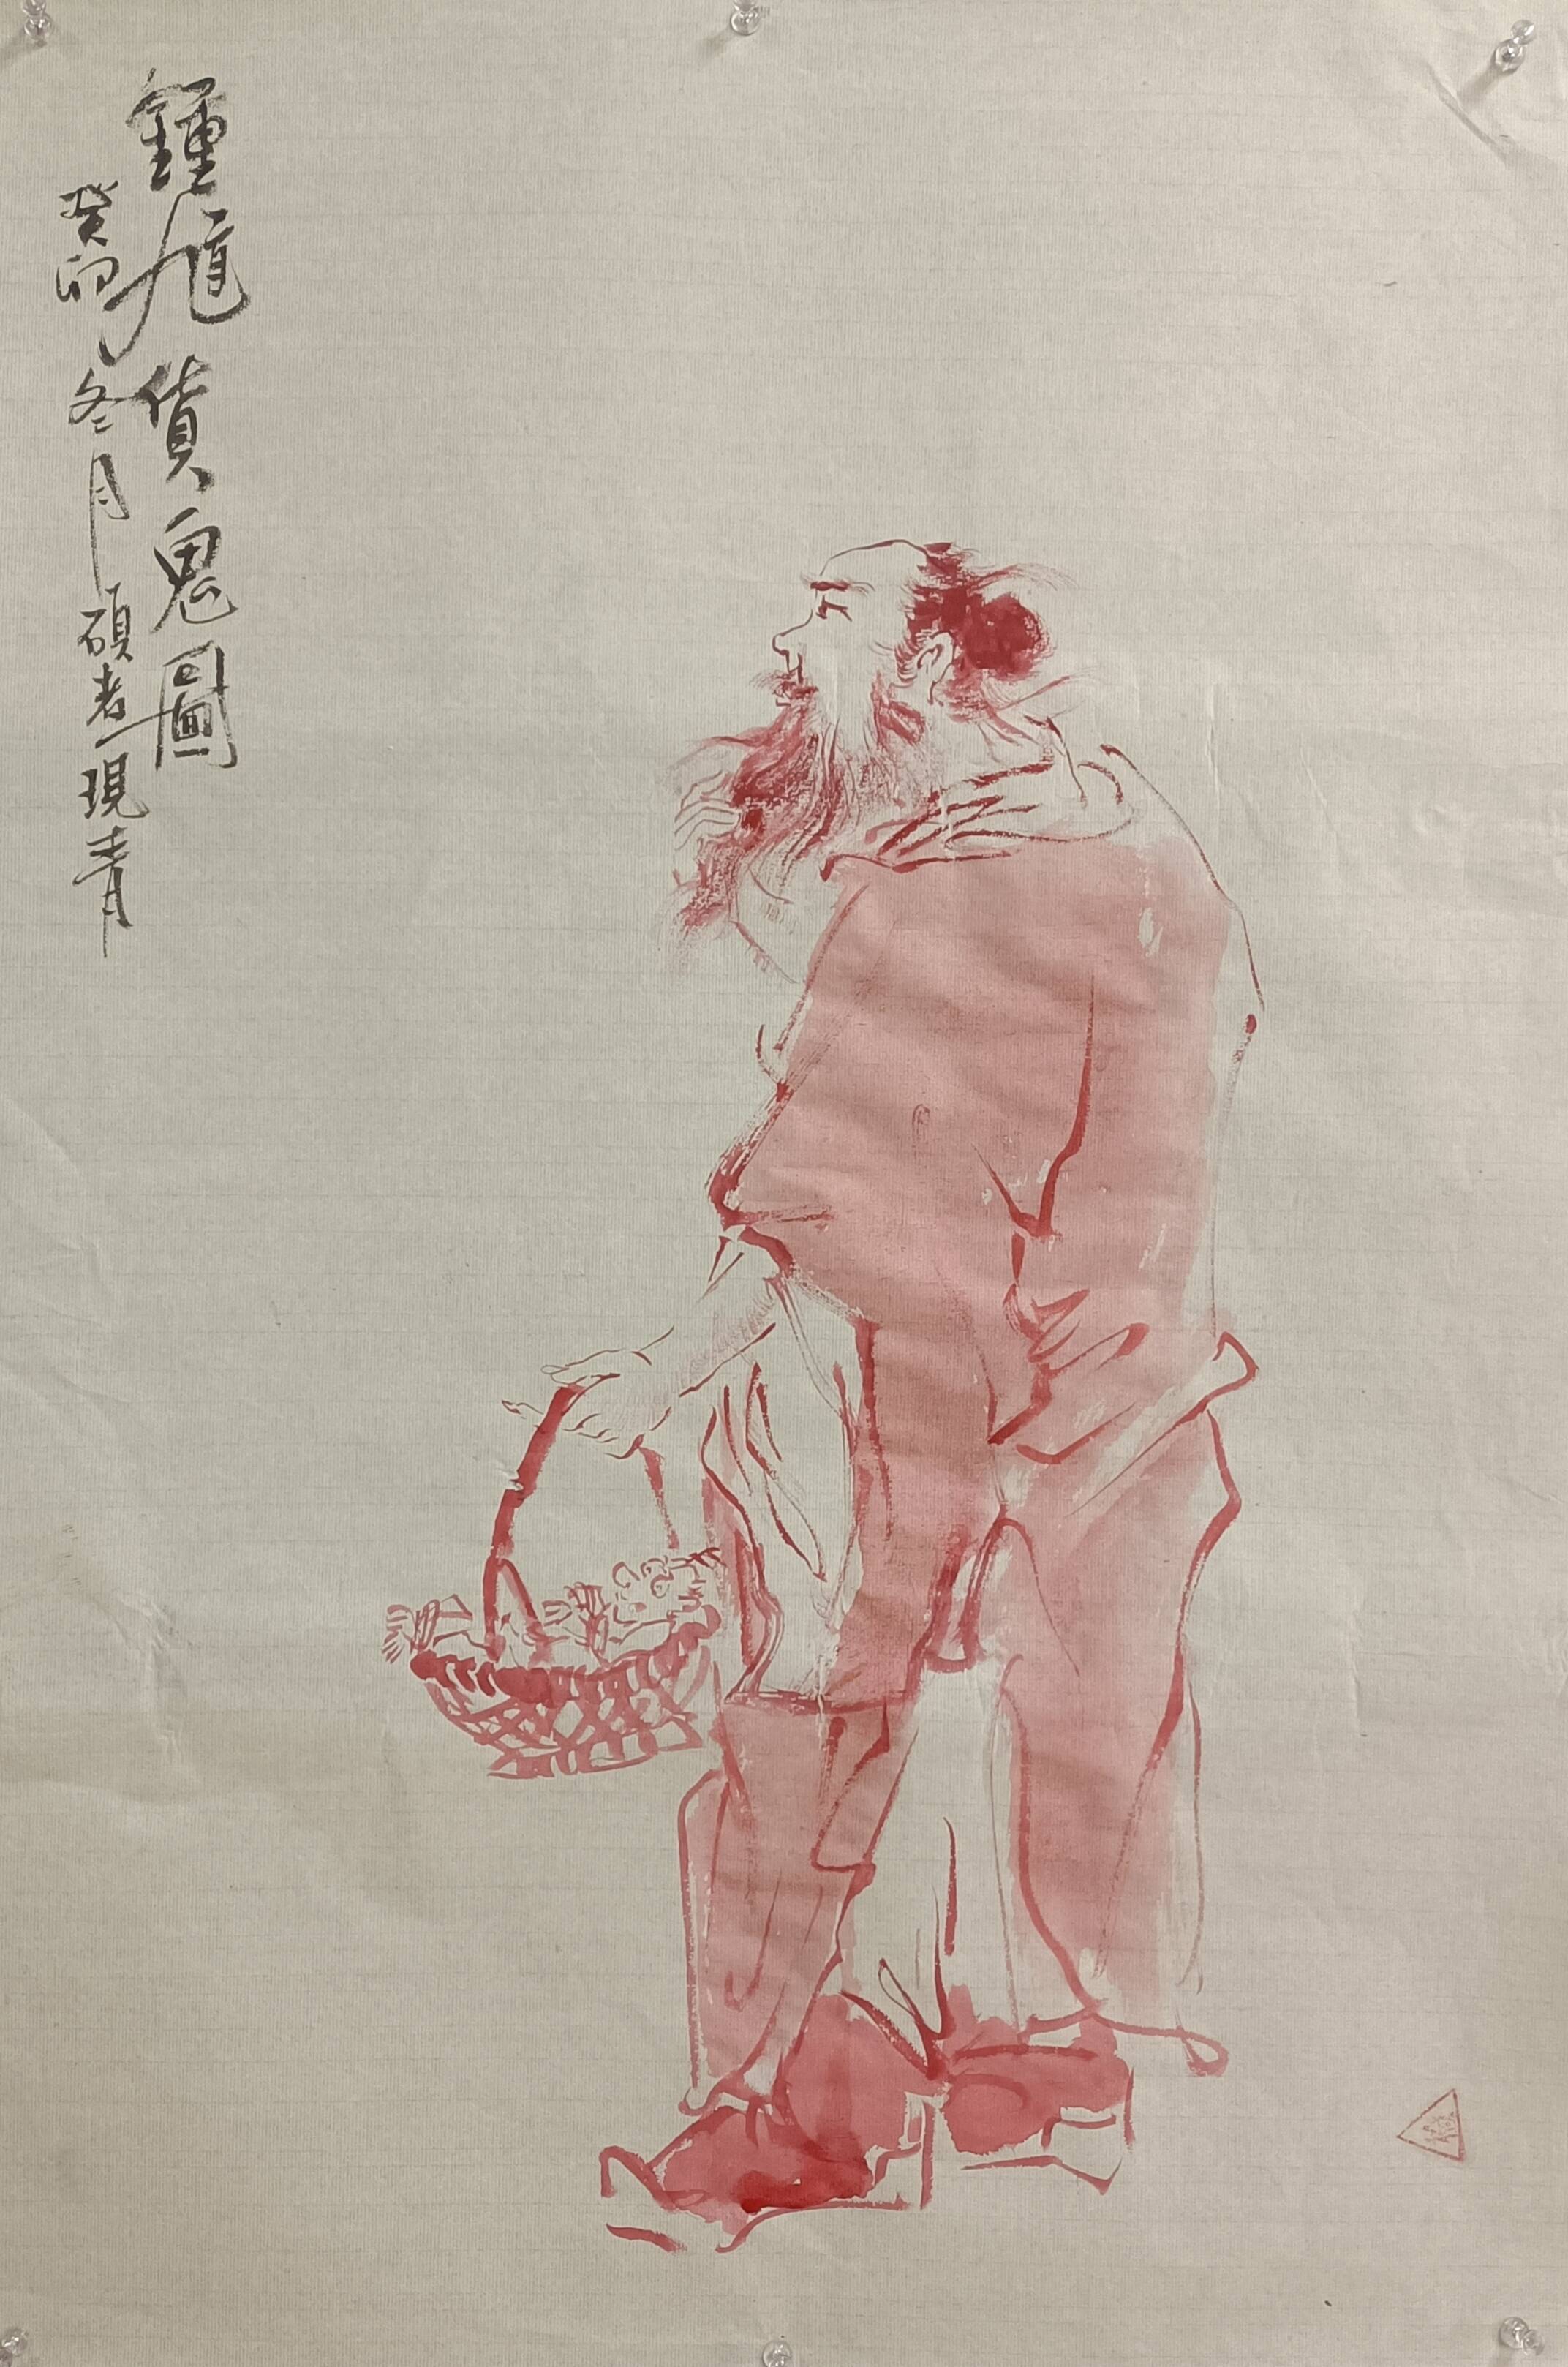 鍾馗貨鬼圖
癸卯冬月碩者現青